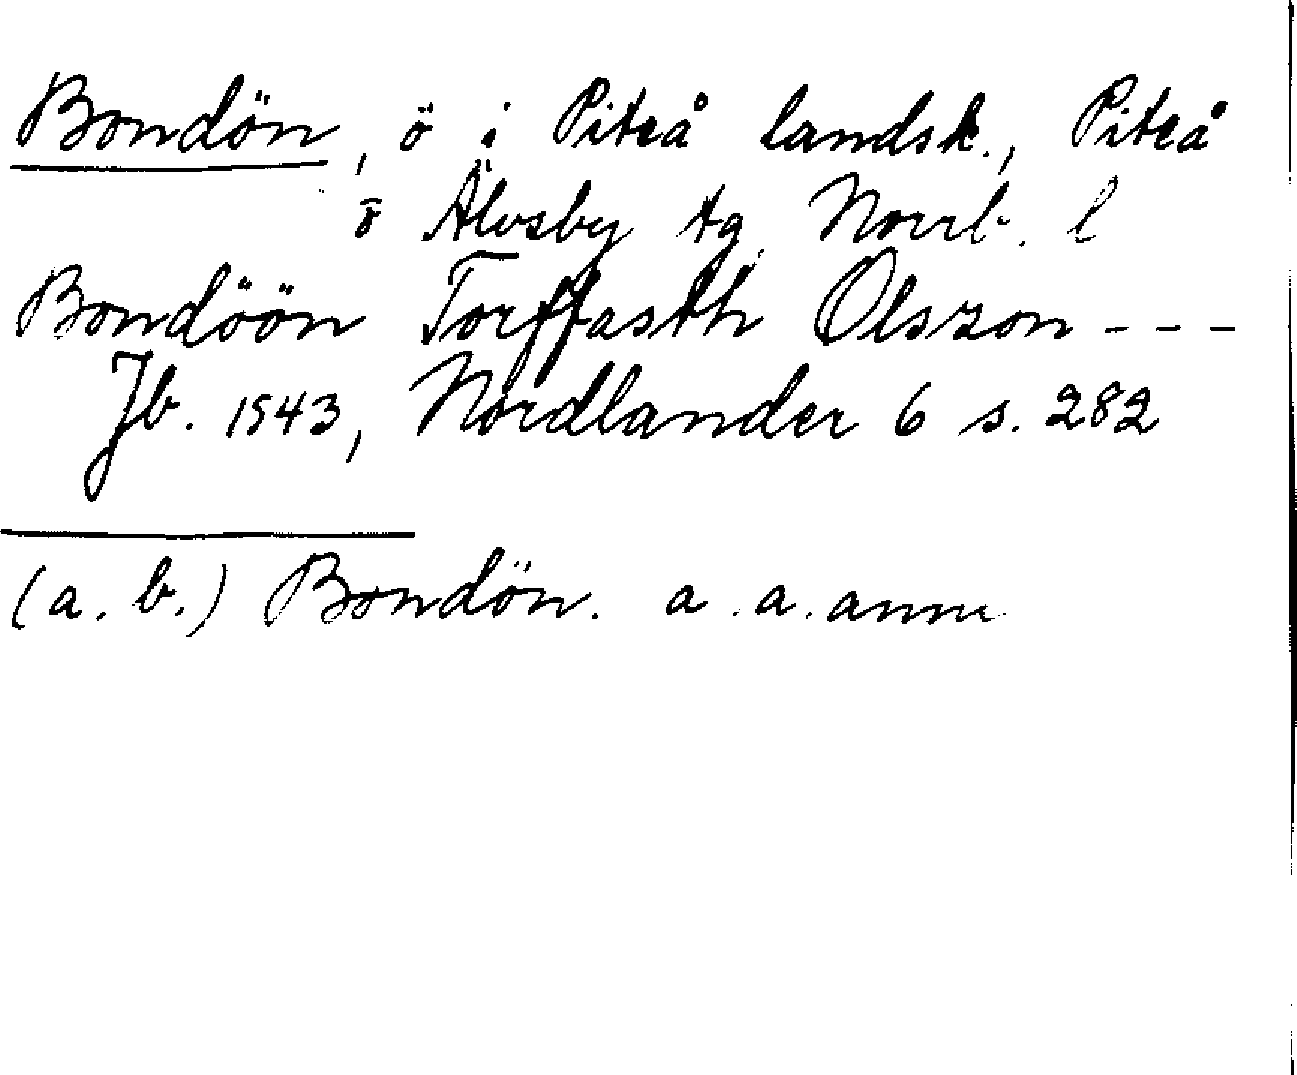 Bondön, ö i Piteå landsk., Piteå
o Älvsby tg Norrb. l
Bondöön Torffasth Olsson - - -
Jb. 1543, Nordlander 6 s. 282
(a. b.) Bondön. a. a. anm